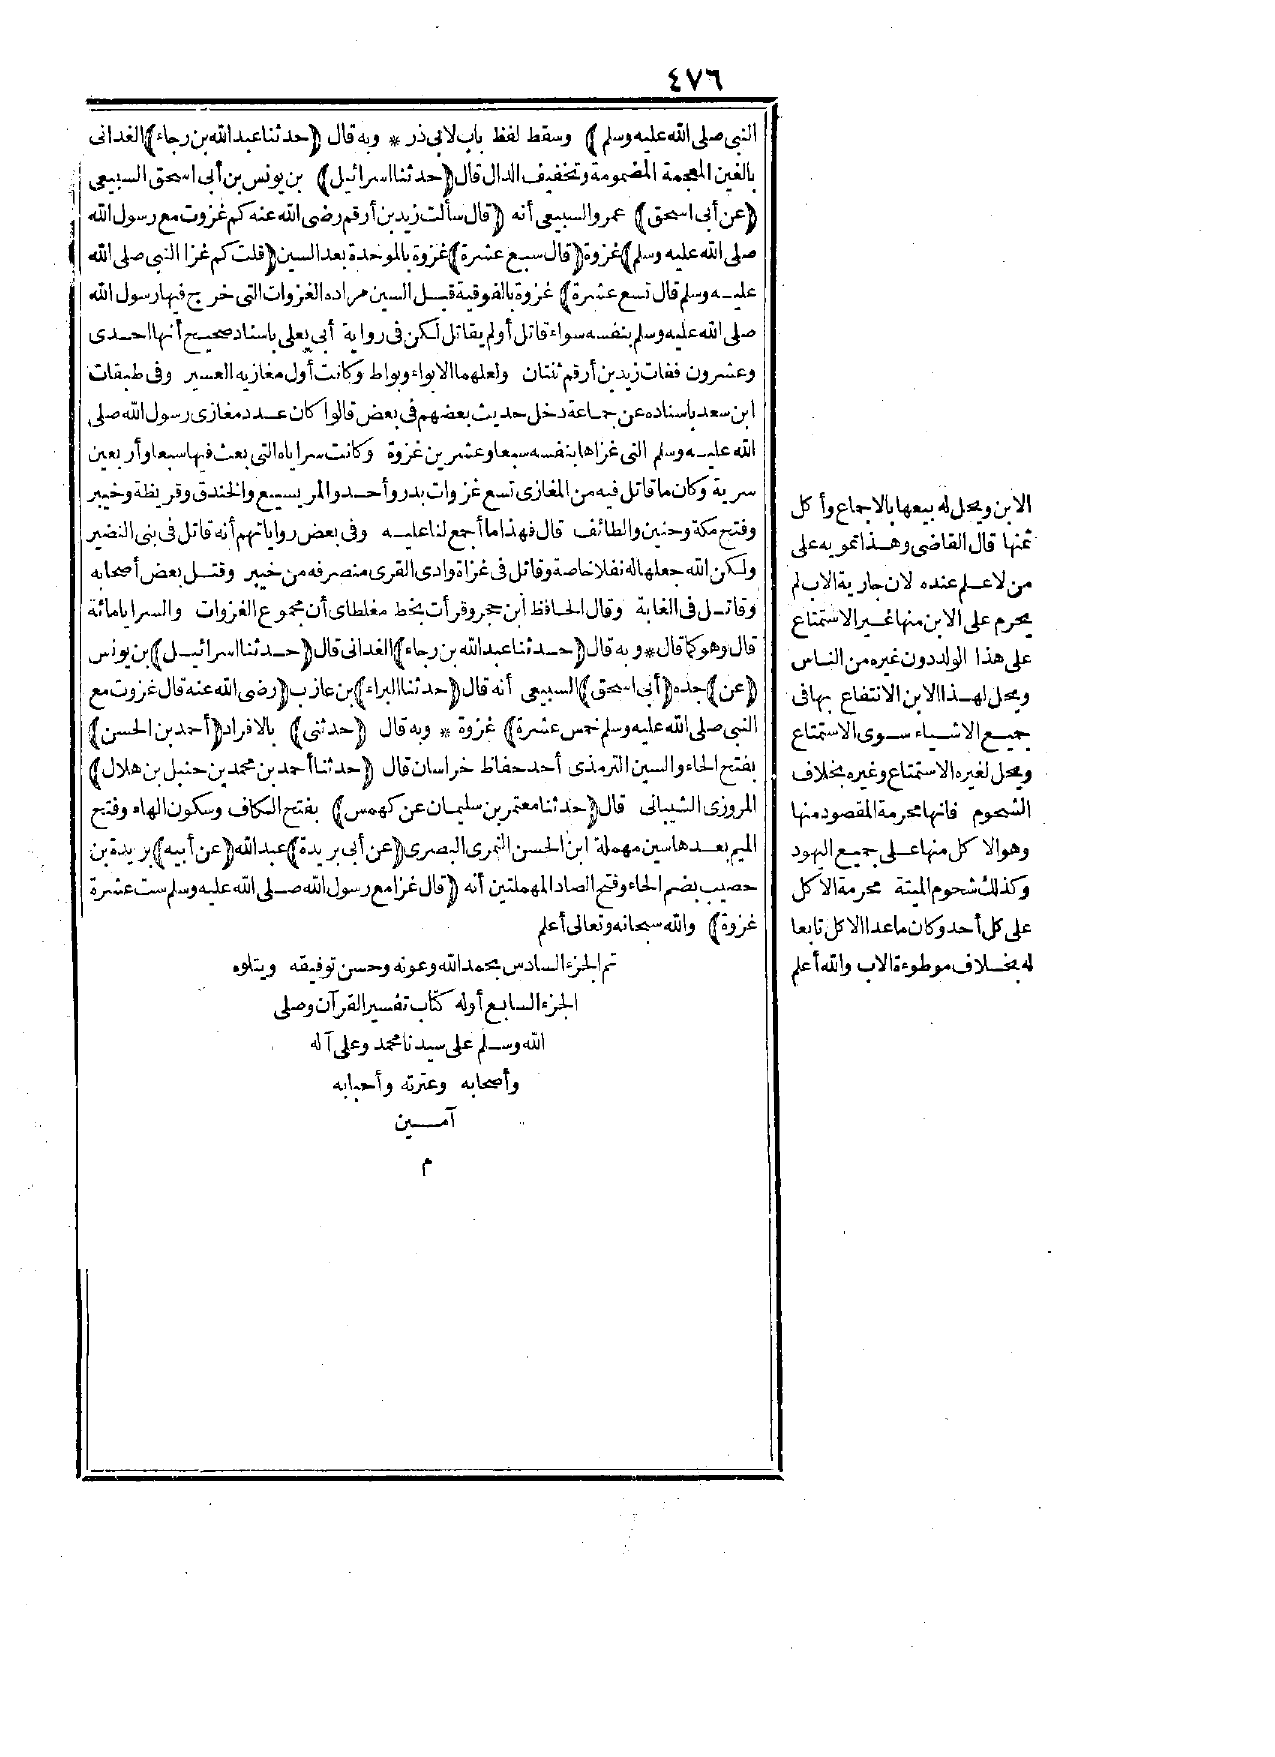 ٤٧٦
النبى صلى الله عليه وسلم) وسقط لفظ باب لابى ذر * وبه قال (حدثنا عبد الله بن رجاء) الغدانى
بالغين المعجمة المضمومة وتخفيف الدال قال (حدثنا اسرائيل) بن يونس بن أبى اسحق السبيعى
(عن أبى اسحق) عمرو السبيعى أنه (قال سألت زيد بن أرقم رضى الله عنه كم غزوت مع رسول الله
صلى الله عليه وسلم) غزوة (قال سبع عشرة) غزوة بالموحدة بعد السين (قلت كم غزا النبى صلى الله
عليه وسلم قال تسع عشرة) غزوة بالفوقية قبل السين مراده الغزوات التى خرج فيها رسول الله
صلى الله عليه وسلم بنفسه سواء قاتل أو لم يقاتل لكن فى رواية أبى يعلى باسناد صحيح أنها احدى
وعشرون ففات زيد بن أرقم ثنتان ولعلهما الابواء وبواط وكانت أول مغازيه العسير وفى طبقات
ابن سعد باسناده عن جماعة دخل حديث بعضهم فى بعض قالوا كان عدد مغازى رسول الله صلى
الله عليه وسلم التى غزاها بنفسه سبعا وعشرين غزوة وكانت سراياه التى بعث فيها سبعا وأربعين
سرية وكان ما قاتل فيه من المغازى تسع غزوات بدر وأحد والمريسيع والخندق وقريظة وخيبر
وفتح مكة وحنين والطائف قال فهذا ما أجمع لنا عليه وفى بعض رواياتهم أنه قاتل فى بنى النضير
ولكن الله جعلها له نفلا خاصة وقاتل فى غزاة وادى القرى منصرفه من خيبر وقتل بعض أصحابه
وقاتل فى الغابة وقال الحافظ ابن حجر وقرأت بخط مغلطاى أن مجموع الغزوات والسرايا مائة
قال وهو كما قال * وبه قال (حدثنا عبد الله بن رجاء) الغدانى قال (حدثنا اسرائيل) بن يونس
(عن) جده (أبى اسحق) السبيعى أنه قال (حدثنا البراء) بن عازب (رضى الله عنه قال غزوت مع
النبى صلى الله عليه وسلم خمس عشرة) غزوة * وبه قال (حدثنى) بالافراد (أحمد بن الحسن)
بفتح الحاء والسين الترمذى أحد حفاظ خراسان قال (حدثنا أحمد بن محمد بن حنبل بن هلال)
المروزى الشيبانى قال (حدثنا معتمر بن سليمان عن كهمس) بفتح الكاف وسكون الهاء وفتح
الميم بعدها سين مهملة ابن الحسن النمرى البصرى (عن أبى بريدة) عبد الله (عن أبيه) بريدة بن
حصيب بضم الحاء وفتح الصاد المهملتين أنه (قال غزا مع رسول الله صلى الله عليه وسلم ست عشرة
غزوة) والله سبحانه وتعالى أعلم
تم الجزء السادس بحمد الله وعونه وحسن توفيقه ويتلوه
الجزء السابع أوله كتاب تفسير القرآن وصلى
الله وسلم على سيدنا محمد وعلى آله
وأصحابه وعترته وأحبابه
آمين
م
الابن ويحل له بيعها بالاجماع وأكل
ثمنها قال القاضى وهذا تمويه على
من لا علم عنده لان جارية الاب لم
يحرم على الابن منها غير الاستمتاع
على هذا الولد دون غيره من الناس
ويحل لهذا الابن الانتفاع بها فى
جميع الاشياء سوى الاستمتاع
ويحل لغيره الاستمتاع وغيره بخلاف
الشحوم فانها محرمة المقصود منها
وهو الاكل منها على جميع اليهود
وكذلك شحوم الميتة محرمة الاكل
على كل أحد وكان ما عدا الاكل تابعا
له بخلاف موطوءة الاب والله أعلم